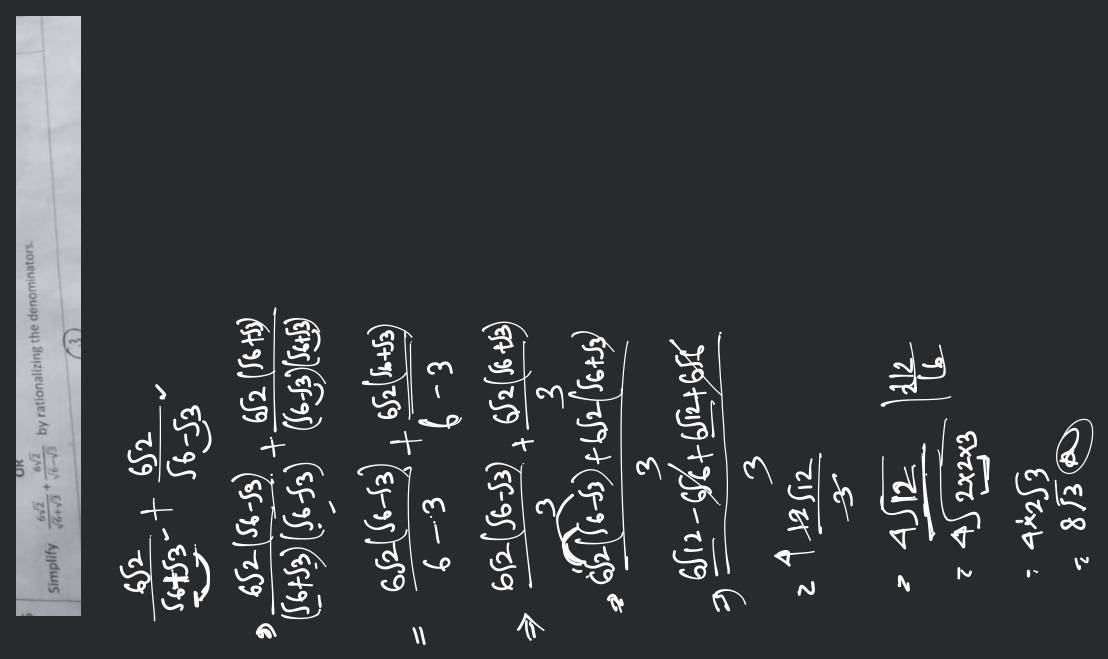 OR
Simplify 6√2/(√6+√3) + 6√2/(√6-√3) by rationalizing the denominators.
3
6√2/(√6+√3) + 6√2/(√6-√3)
⇒ 6√2(√6-√3)/((√6+√3)(√6-√3)) + 6√2(√6+√3)/((√6-√3)(√6+√3))
= 6√2(√6-√3)/(6-3) + 6√2(√6+√3)/(6-3)
⇒ 6√2(√6-√3)/3 + 6√2(√6+√3)/3
⇒ (6√2(√6-√3)+6√2(√6+√3))/3
⇒ (6√12-6√6+6√12+6√6)/3
= 4 12√12/3
= 4√12 2|12
6
= 4√2×2×3
= 4×2√3
= 8√3